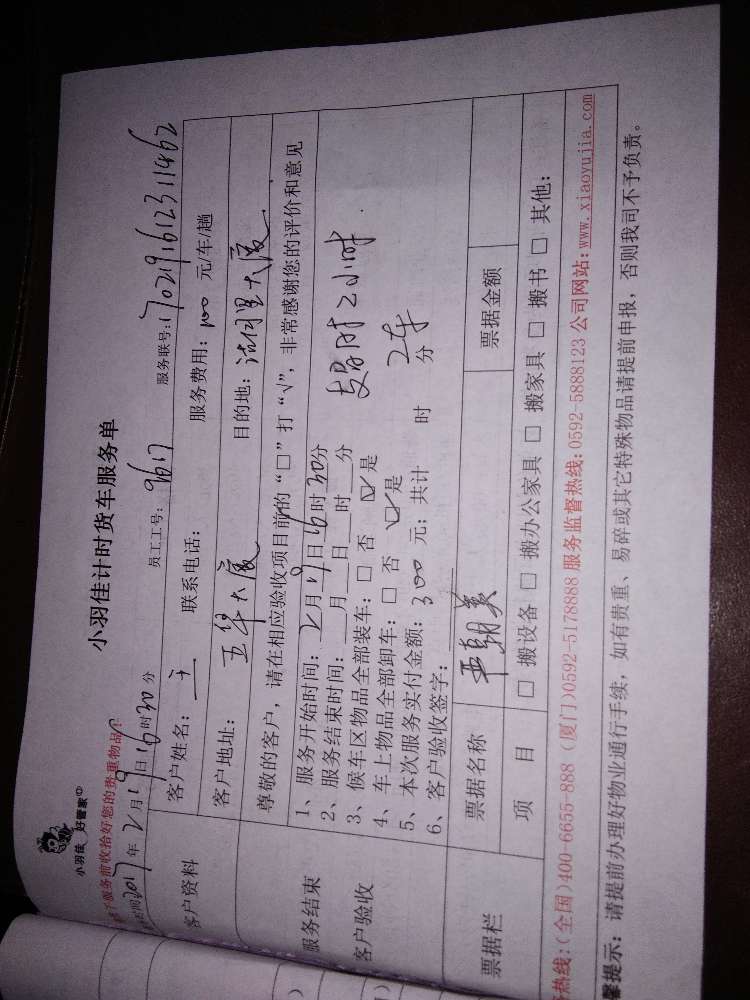 小羽佳 好管家
小羽佳计时货车服务单
服务前收拾好您的贵重物品
2017年2月19日16时30分
员工工号：9617
服务联号：1702191612311962
客户资料
客户姓名：王
联系电话：
服务费用：100 元/车/趟
客户地址：五华大厦
目的地：
大厦
尊敬的客户，请在相应验收项目前的“□”打“√”，非常感谢您的评价和意见
服务结束
客户验收
1、服务开始时间：2月19日16时30分
2、服务结束时间：___月___日___时___分
3、候车区物品全部装车：□ 否 ☑ 是
4、车上物品全部卸车：□ 否 ☑ 是
超时2小时
2车
5、本次服务实付金额：300 元；共计 时 分
6、客户验收签字：
票据栏
票据名称
票据金额
项 目
□ 搬设备 □ 搬办公家具 □ 搬家具 □ 搬书 □ 其他：
热线：(全国)400-6655-888 (厦门)0592-5178888 服务监督热线：0592-5888123 公司网站：www.xiaoyujia.com
馨提示：请提前办理好物业通行手续，如有贵重、易碎或其它特殊物品请提前申报，否则我司不予负责。